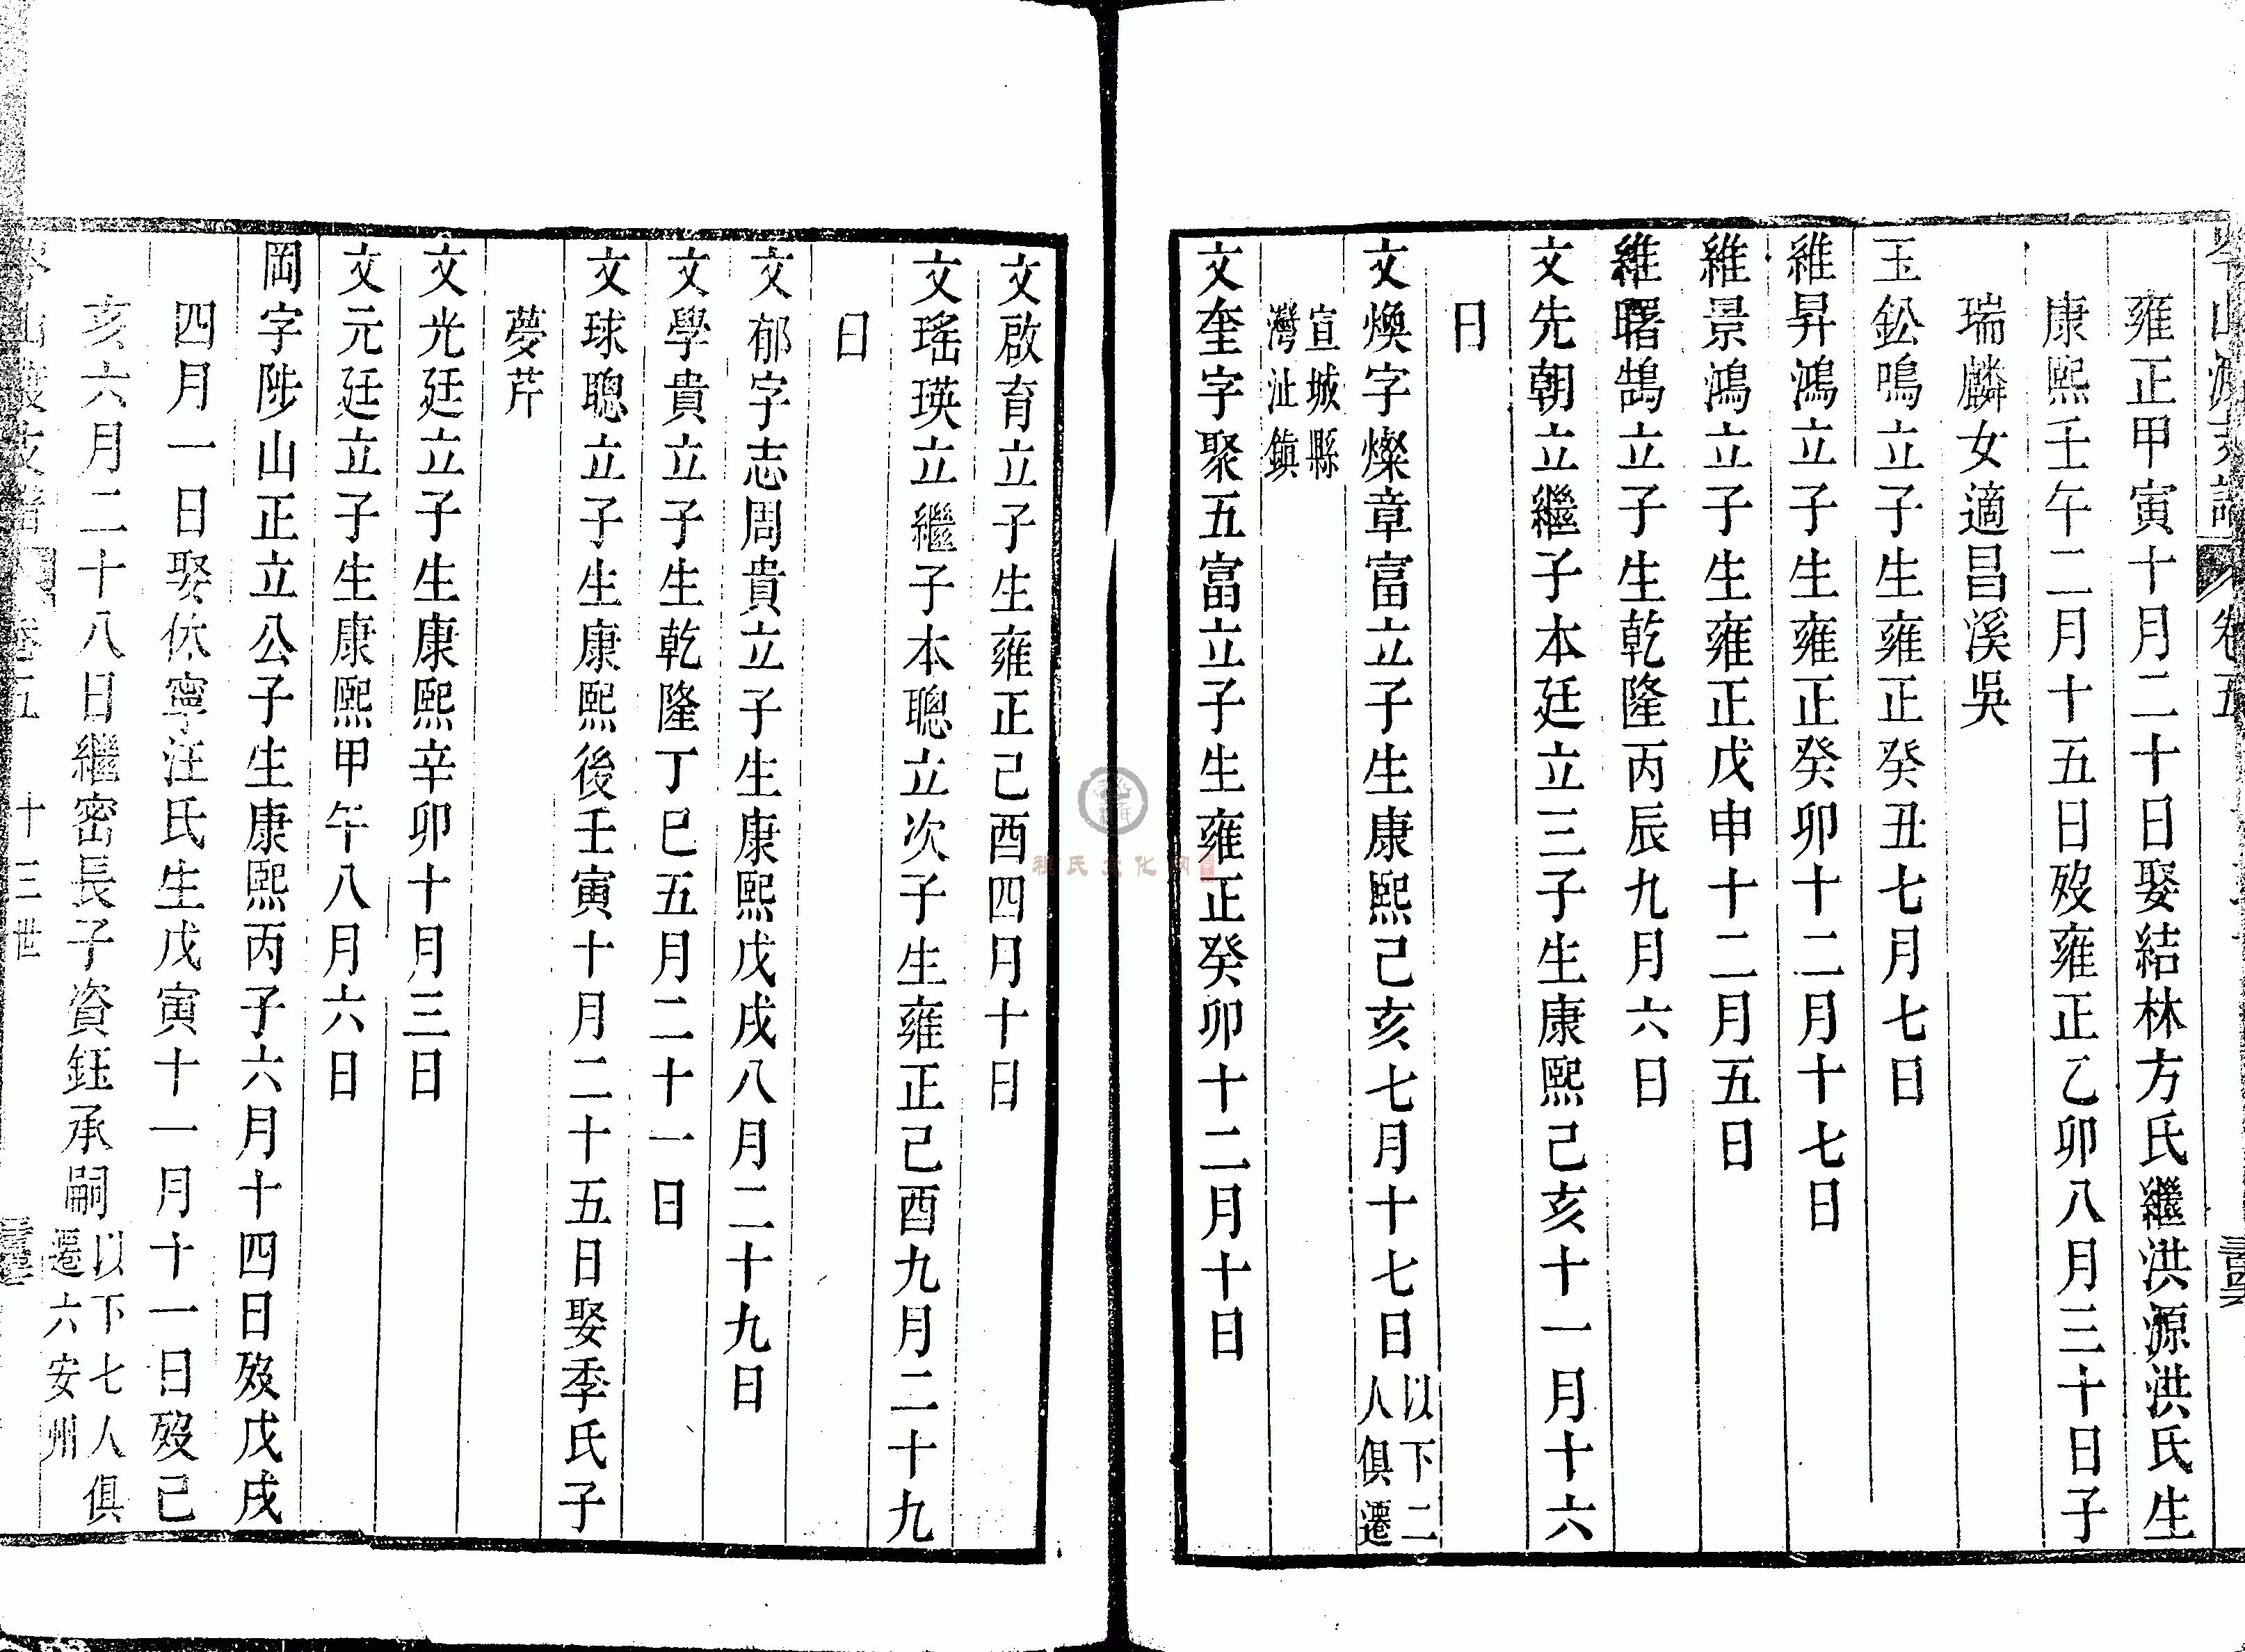 雍正甲寅十月二十日娶結林方氏繼洪源洪氏生
康熙壬午二月十五日歿雍正乙卯八月三十日子
瑞麟女適昌溪吳
玉鈆鳴立子生雍正癸丑七月七日
維昇鴻立子生雍正癸卯十二月十七日
維景鴻立子生雍正戊申十二月五日
維曙鵠立子生乾隆丙辰九月六日
文先朝立繼子本廷立三子生康熙己亥十一月十六
日
文煥字燦章富立子生康熙己亥七月十七日以下二人俱遷
宣城縣灣沚鎮
文奎字聚五富立子生雍正癸卯十二月十日
文啟育立子生雍正己酉四月十日
文瑤瑛立繼子本聰立次子生雍正己酉九月二十九
日
文郁字志周貴立子生康熙戊戌八月二十九日
文學貴立子生乾隆丁巳五月二十一日
文球聰立子生康熙後壬寅十月二十五日娶季氏子
夢芹
文光廷立子生康熙辛卯十月三日
文元廷立子生康熙甲午八月六日
岡字陟山正立公子生康熙丙子六月十四日歿戊戌
四月一日娶休寧汪氏生戊寅十一月十一日歿己
亥六月二十八日繼密長子資鈺承嗣以下七人俱遷六安州
卷五 十三世